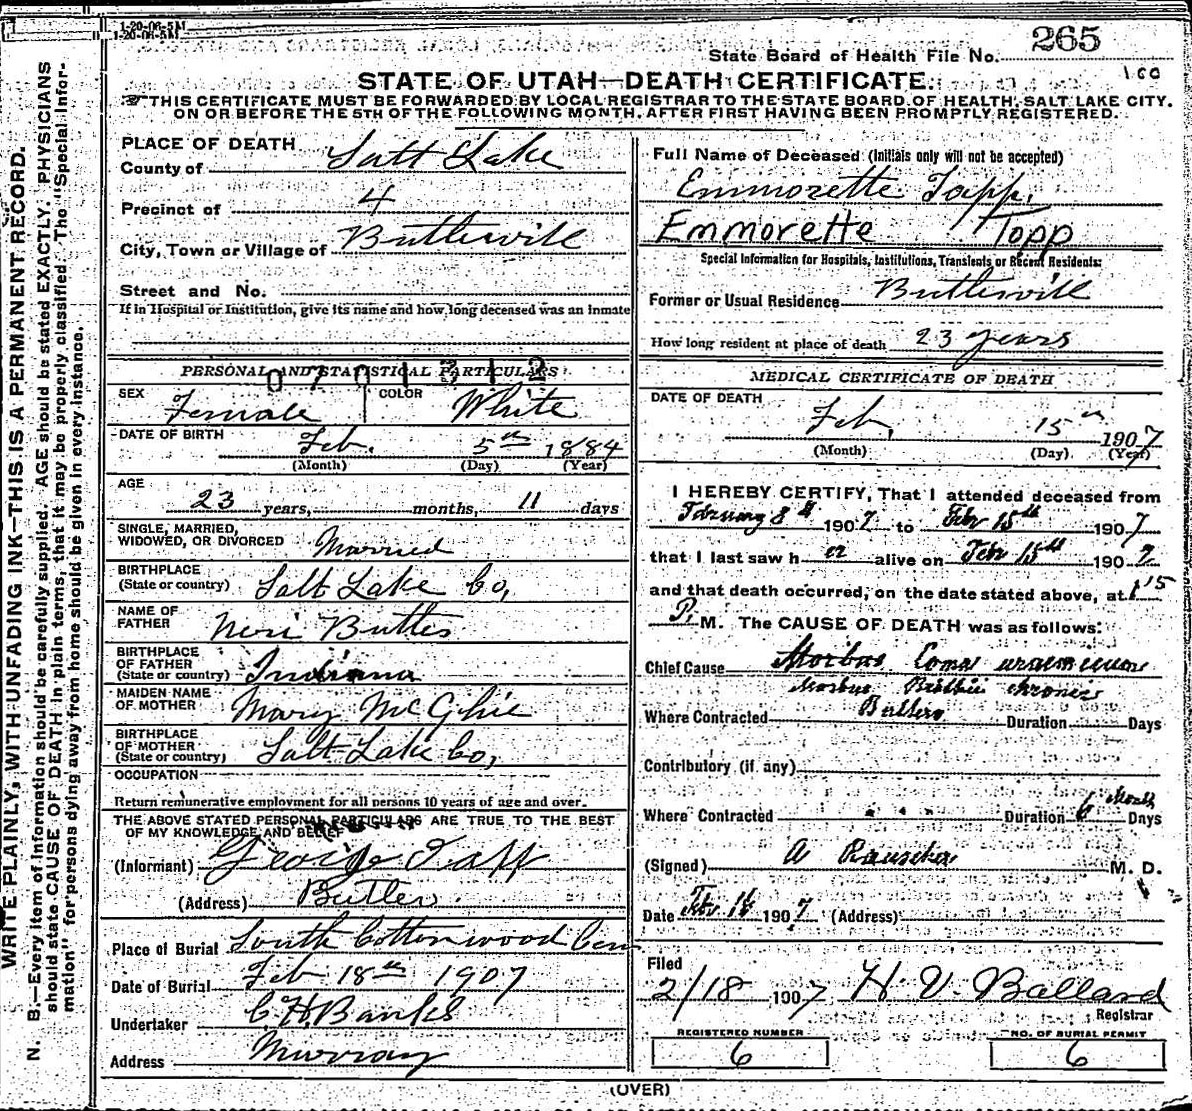 1-20-06-5M
1-20-06-5M
State Board of Health File No. 265
100
STATE OF UTAH—DEATH CERTIFICATE.
THIS CERTIFICATE MUST BE FORWARDED BY LOCAL REGISTRAR TO THE STATE BOARD OF HEALTH, SALT LAKE CITY.
ON OR BEFORE THE 5TH OF THE FOLLOWING MONTH, AFTER FIRST HAVING BEEN PROMPTLY REGISTERED.
WRITE PLAINLY, WITH UNFADING INK—THIS IS A PERMANENT RECORD.
N. B.—Every item of information should be carefully supplied. AGE should be stated EXACTLY. PHYSICIANS
should state CAUSE OF DEATH in plain terms, that it may be properly classified. The "Special Infor-
mation" for persons dying away from home should be given in every instance.
PLACE OF DEATH
County of Salt Lake
Precinct of 4
City, Town or Village of Butlerville
Street and No.
If in Hospital or Institution, give its name and how long deceased was an inmate
PERSONAL AND STATISTICAL PARTICULARS
0701312
SEX Female COLOR White
DATE OF BIRTH Feb. 5th 1884
(Month) (Day) (Year)
AGE
23 years, months, 11 days
SINGLE, MARRIED,
WIDOWED, OR DIVORCED Married
BIRTHPLACE
(State or country) Salt Lake Co,
NAME OF
FATHER Neri Butler
BIRTHPLACE
OF FATHER
(State or country) Indiana
MAIDEN NAME
OF MOTHER Mary McGhie
BIRTHPLACE
OF MOTHER
(State or country) Salt Lake Co,
OCCUPATION
Return remunerative employment for all persons 10 years of age and over.
THE ABOVE STATED PERSONAL PARTICULARS ARE TRUE TO THE BEST
OF MY KNOWLEDGE AND BELIEF
(Informant) George Tapp
(Address) Butler
Place of Burial South Cottonwood Cem
Date of Burial Feb 18th 1907
Undertaker C. H. Banks
Address Murray
Full Name of Deceased (Initials only will not be accepted)
Emmorette Topp,
Emmorette Topp
Special Information for Hospitals, Institutions, Transients or Recent Residents:
Former or Usual Residence Butlerville
How long resident at place of death 23 years
MEDICAL CERTIFICATE OF DEATH
DATE OF DEATH
Feb, 15th 1907
(Month) (Day) (Year)
I HEREBY CERTIFY, That I attended deceased from
February 8th 1907 to Febr 15th 1907
that I last saw her alive on Febr 15th 1907
and that death occurred, on the date stated above, at 1 15
P. M. The CAUSE OF DEATH was as follows:
Chief Cause Morbus Coma
Morbus chronic
Where Contracted Butler Duration Days
Contributory (if any)
Where Contracted Duration 6 Month Days
(Signed) A M. D.
Date Febr 1907 (Address)
Filed
2/18 1907 H. V. Ballard
Registrar
REGISTERED NUMBER
6
NO. OF BURIAL PERMIT
6
(OVER)